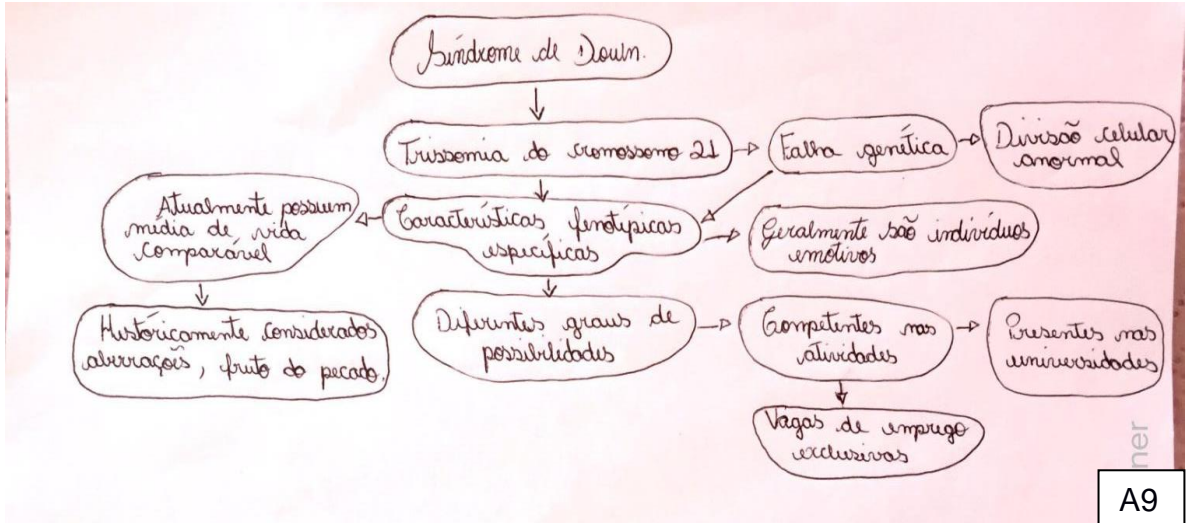 Síndrome de Down.
Trissomia do cromossomo 21
Falha genética
Divisão celular
anormal
Atualmente possuem
média de vida
comparável
Características fenotípicas
específicas
Geralmente são indivíduos
emotivos
Históricamente considerados
aberrações, fruto do pecado.
Diferentes graus de
possibilidades
Competentes nas
atividades
Presentes nas
universidades
Vagas de emprego
exclusivas
ner
A9